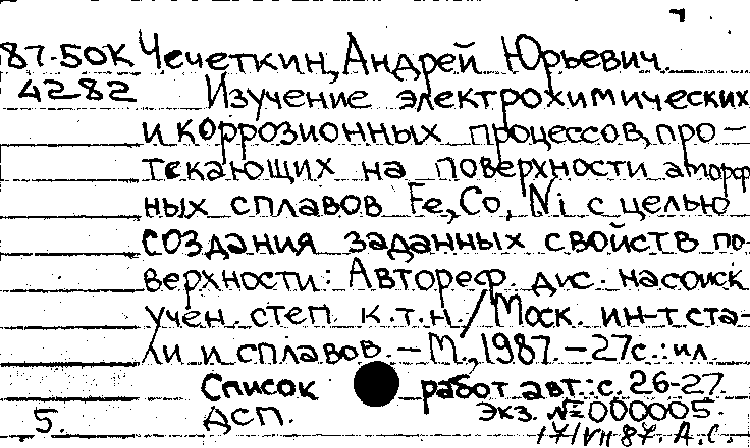 87-50К Чечеткин, Андрей Юрьевич.
4282 Изучение электрохимических
и коррозионных процессов, про-
текающих на поверхности аморф
ных сплавов Fe, Co, Ni с целью
создания заданных свойств по-
верхности: Автореф. дис. на соиск
учен. степ. к.т.н. / Моск. ин-т ста-
ли и сплавов. - М., 1987. - 27с.: ил.
Список работ авт.: с. 26-27.
5. ДСП. Экз. №000005.
17/VII 87. А.С.